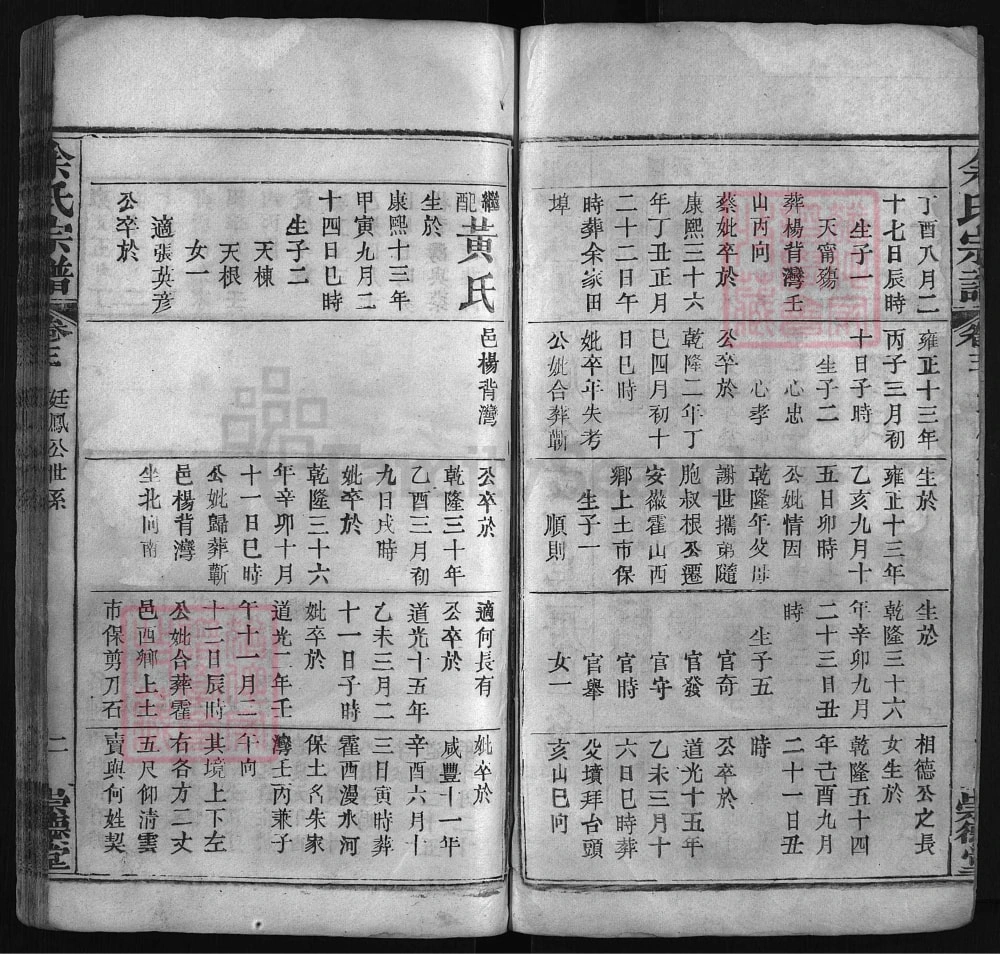 丁酉八月二
十七日辰時
生子一
天甯殤
葬楊背灣壬
山丙向
蔡妣卒於
康熙三十六
年丁丑正月
二十二日午
時葬余家田
埠
雍正十三年
丙子三月初
十日子時
生子二
心忠
心孝
公卒於
乾隆二年丁
巳四月初十
日巳時
妣卒年失考
公妣合葬蘄
生於
雍正十三年
乙亥九月十
五日卯時
公妣情因
乾隆年父母
謝世攜弟隨
胞叔根公遷
安徽霍山西
鄉上土市保
生子一
順則
生於
乾隆三十六
年辛卯九月
二十三日丑
時
生子五
官奇
官發
官守
官時
官舉
女一
相德公之長
女生於
乾隆五十四
年己酉九月
二十一日丑
時
公卒於
道光十五年
乙未三月十
六日巳時葬
父墳拜台頭
亥山巳向
繼配黃氏
生於
康熙十三年
甲寅九月二
十四日巳時
生子二
天棟
天根
女一
適張英彦
公卒於
邑楊背灣
公卒於
乾隆三十年
乙酉三月初
九日戌時
妣卒於
乾隆三十六
年辛卯十月
十一日巳時
公妣歸葬蘄
邑楊背灣
坐北向南
適何長有
公卒於
道光十五年
乙未三月二
十一日子時
妣卒於
道光二年壬
午十一月二
十二日辰時
公妣合葬霍
邑西鄉上土
市保剪刀石
妣卒於
咸豐十一年
辛酉六月十
三日寅時葬
霍西漫水河
保土名朱家
灣壬丙兼子
午向
其境上下左
右各方二丈
五尺仰清雲
賣與何姓契
余氏宗譜
卷三
廷鳳公世系
二
崇德堂